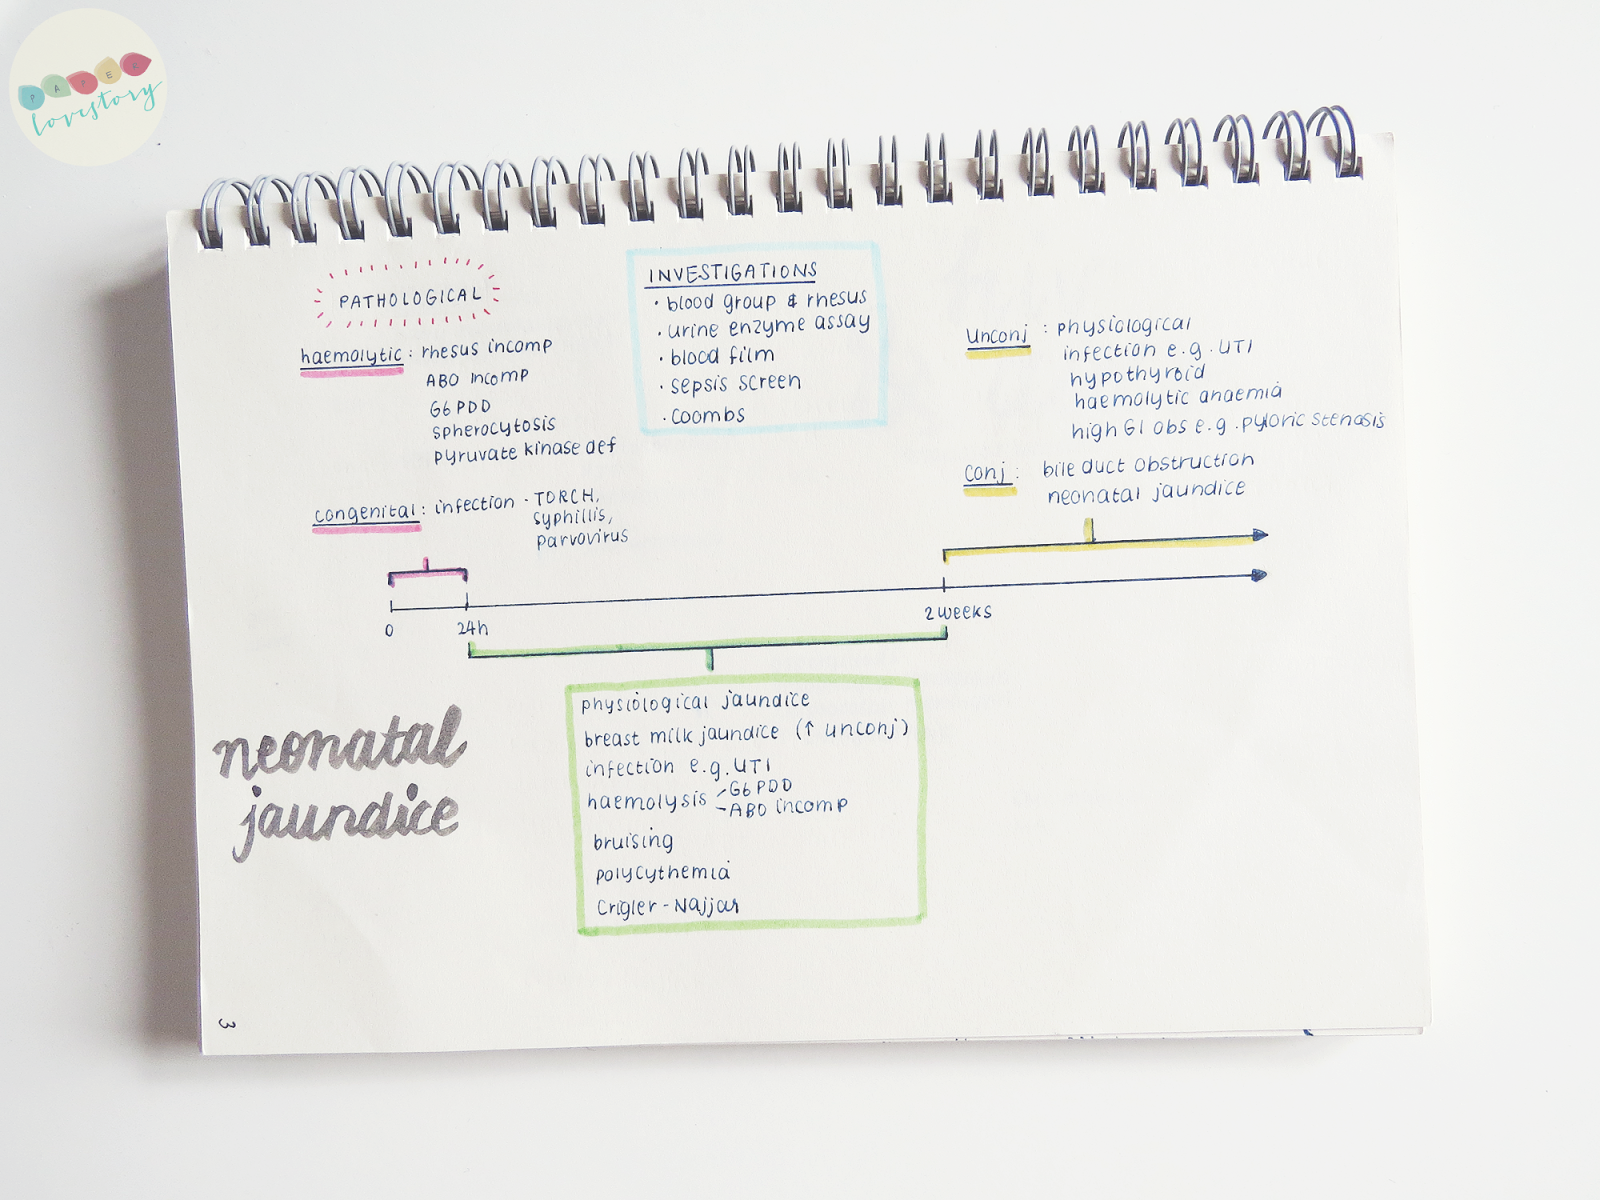 PAPER
lovestory
PATHOLOGICAL
haemolytic: rhesus incomp
ABO incomp
G6PDD
spherocytosis
pyruvate kinase def
congenital: infection - TORCH,
syphillis,
parvovirus
INVESTIGATIONS
· blood group & rhesus
· urine enzyme assay
· blood film
· sepsis screen
· coombs
Unconj : physiological
infection e.g. UTI
hypothyroid
haemolytic anaemia
high GI obs e.g. pyloric stenosis
Conj : bile duct obstruction
neonatal jaundice
0 24h 2 weeks
physiological jaundice
breast milk jaundice (↑ unconj)
infection e.g. UTI
haemolysis - G6PDD
- ABO incomp
bruising
polycythemia
Crigler-Najjar
neonatal
jaundice
3